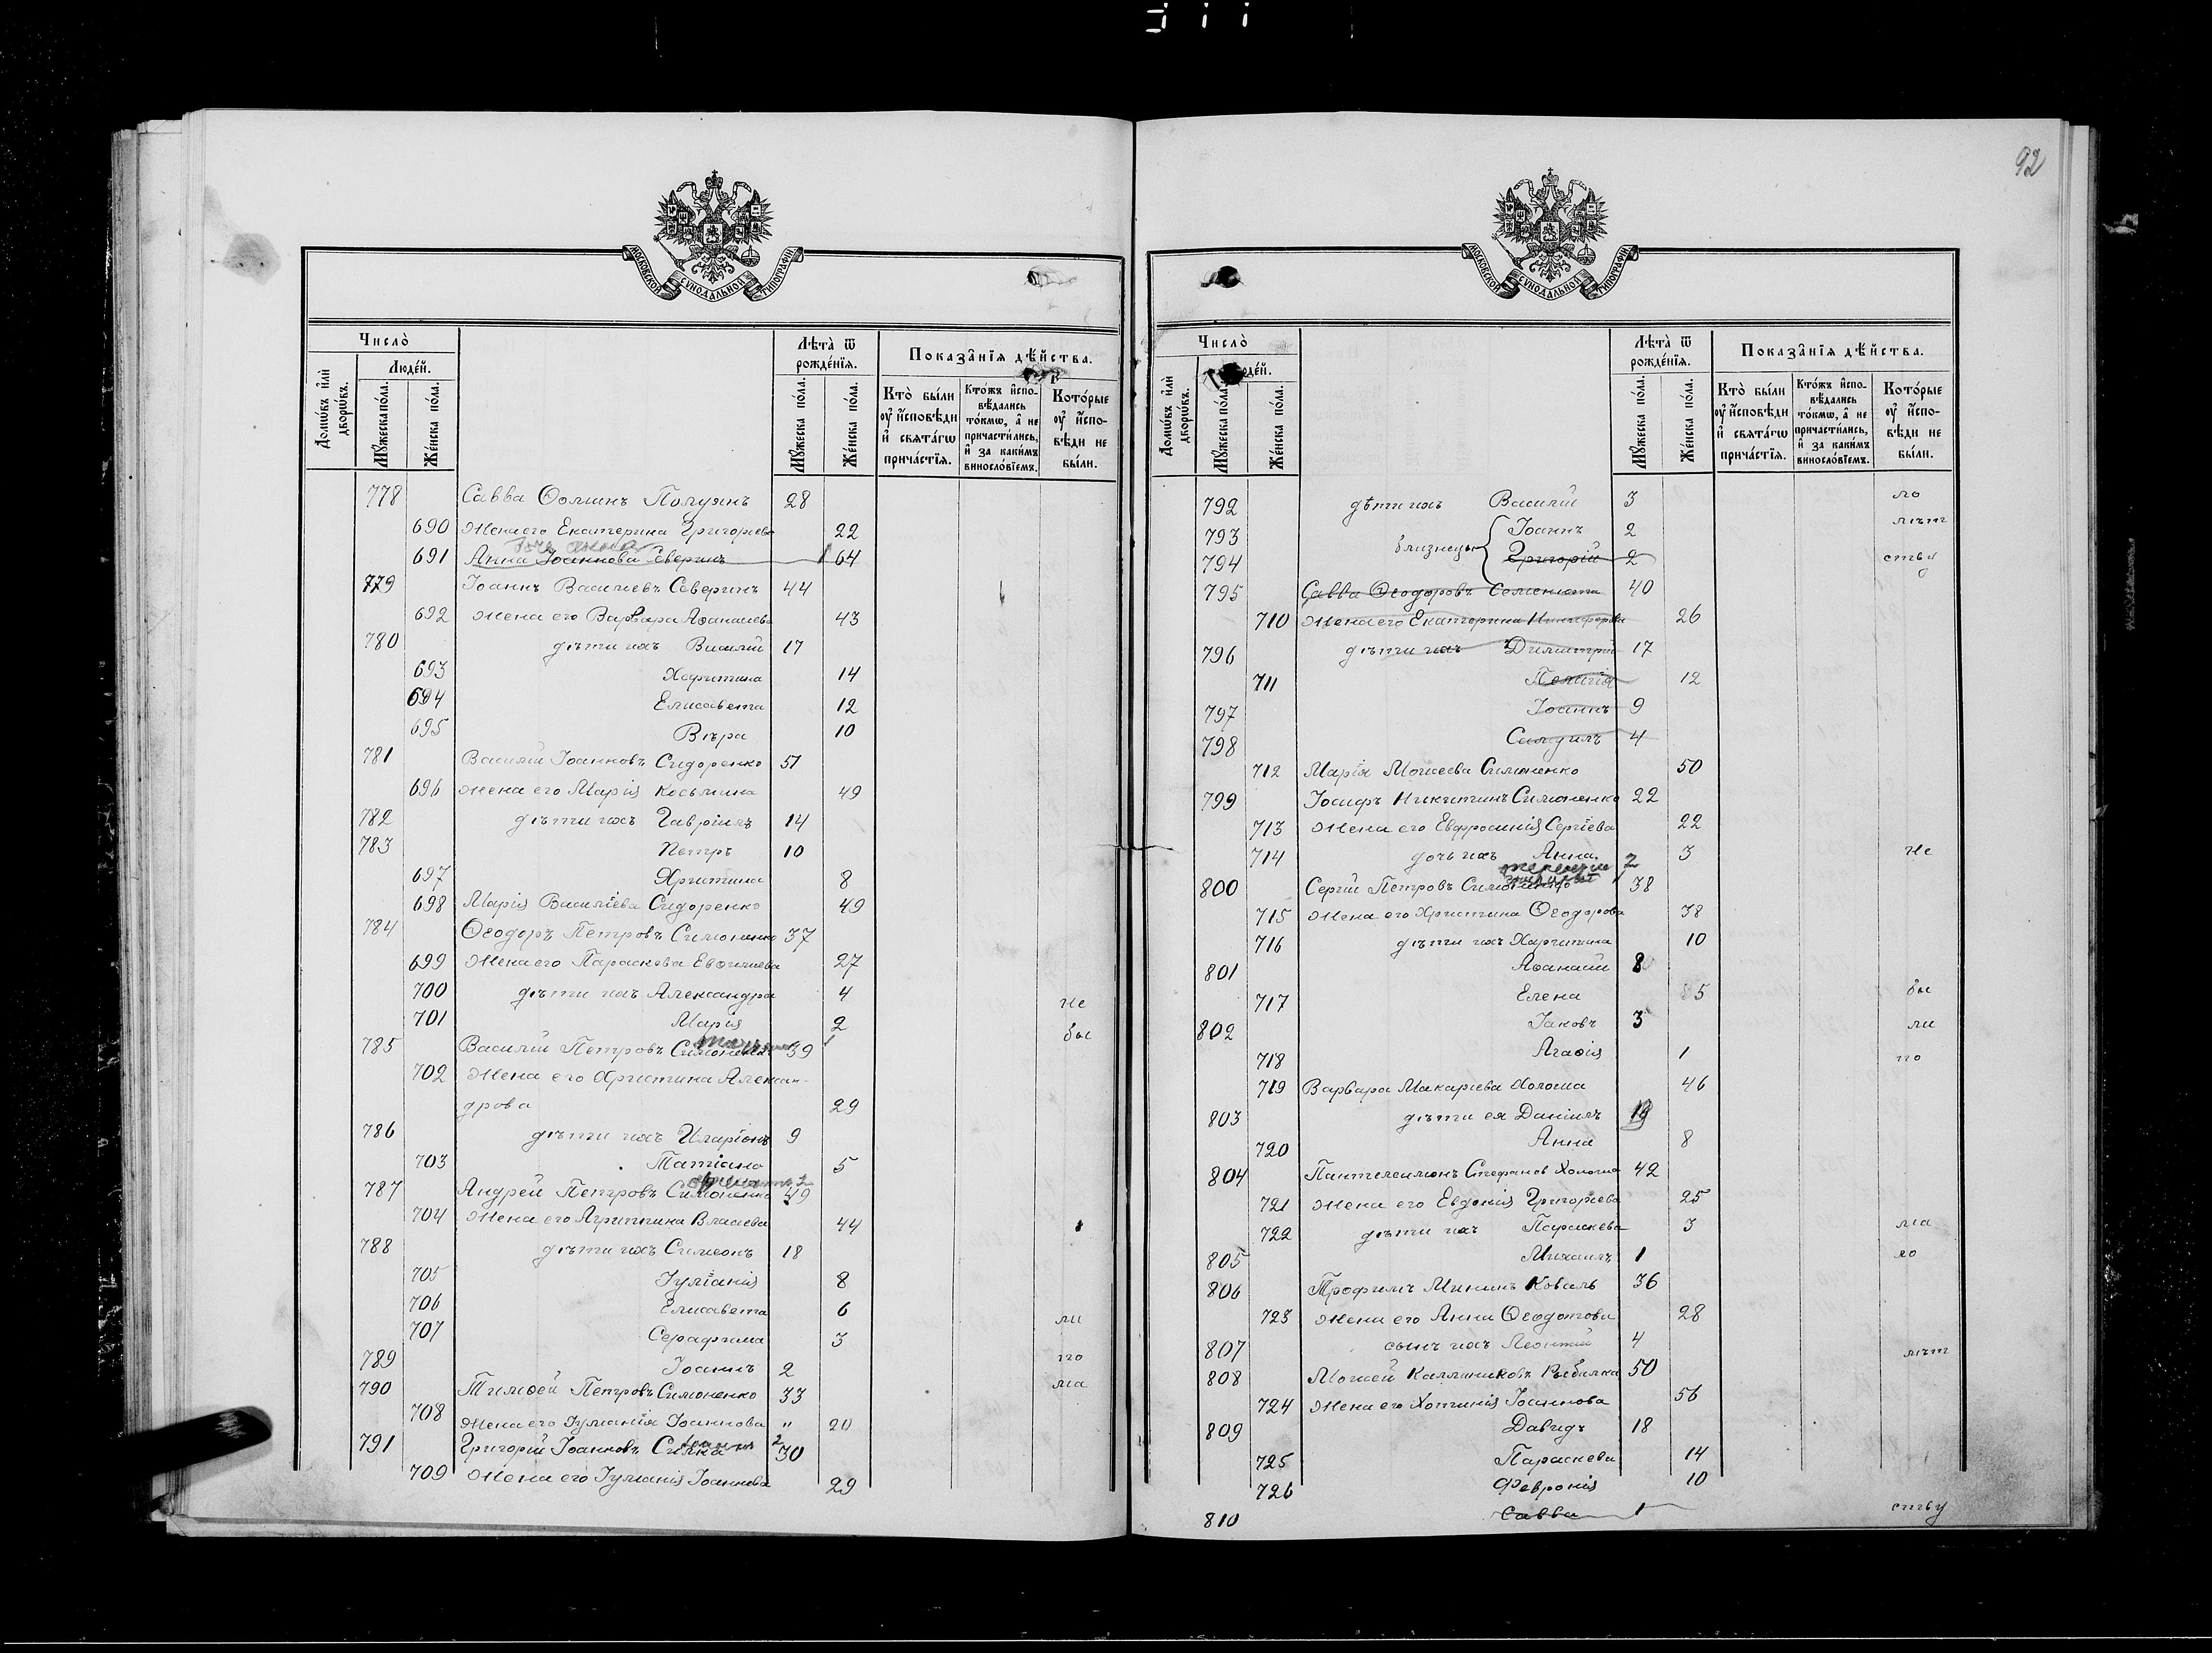 92
МОСКОВСКОЙ СѴНОДАЛЬНОЙ ТИПОГРАФІИ
Число̀
Людей.
Домѡвъ и҆лѝ дворѡвъ.
Мꙋжеска по́ла.
Же́нска по́ла.
Лѣта̀ ѿ рожде́нїѧ.
Мꙋжеска по́ла.
Же́нска по́ла.
Показа̑нїѧ дѣ́йства.
Кто̀ бы́ли оу҆ и҆сповѣди и҆ свѧта́гѡ прича́стїѧ.
Кто́жъ и҆спо-вѣ́дались то́кмѡ, а҆ не причасти́лись, и҆ за каки́мъ винослóвїемъ.
Кото́рые оу҆ и҆спо-вѣди не бы́ли.
778 Савва Ѳоминъ Полуянъ 28
690 Жена его Екатерина Григорьева 22
дочь Анна 1
691 Анна Іоаннова Северинъ 64
779 Іоаннъ Василіевъ Северинъ 44
692 жена его Варвара Аѳанасіева 43
780 дѣти ихъ Василій 17
693 Харитина 14
694 Елисавета 12
695 Вѣра 10
781 Василій Іоанновъ Сидоренко 51
696 жена его Марія Косьмина 49
782 дѣти ихъ Гавріилъ 14
783 Петръ 10
697 Христина 8
698 Марія Василіева Сидоренко 49
784 Ѳеодоръ Петровъ Симоненко 37
699 Жена его Параскева Евѳиміева 27
700 дѣти ихъ Александра 4 не
701 Марія 2 бы
785 Василій Петровъ Симоненко 39
702 Жена его Христина Алексан-
дрова 29
786 дѣти ихъ Иларіонъ 9
703 Татіана 5
787 Андрей Петровъ Симоненко 49
704 Жена его Агриппина Власіева 44
788 дѣти ихъ Симеонъ 18
705 Іуліанія 8
706 Елисавета 6
707 Серафима 3 ли
789 Іоаннъ 2 по
790 Тимоѳей Петровъ Симоненко 33 ма
708 Жена его Іуліанія Іоаннова " 20
791 Григорій Іоанновъ 30
709 Жена его Іуліанія Іоаннова 29
МОСКОВСКОЙ СѴНОДАЛЬНОЙ ТИПОГРАФІИ
Число̀
Людей.
Домѡвъ и҆лѝ дворѡвъ.
Мꙋжеска по́ла.
Же́нска по́ла.
Лѣта̀ ѿ рожде́нїѧ.
Мꙋжеска по́ла.
Же́нска по́ла.
Показа̑нїѧ дѣ́йства.
Кто̀ бы́ли оу҆ и҆сповѣди и҆ свѧта́гѡ прича́стїѧ.
Кто́жъ и҆спо-вѣ́дались то́кмѡ, а҆ не причасти́лись, и҆ за каки́мъ винослóвїемъ.
Кото́рые оу҆ и҆спо-вѣди не бы́ли.
792 дѣти ихъ Василій 3 ло
793 Іоаннъ 2 лѣт
близнецы
794 Григорій 2 ству
795 Савва Ѳеодоровъ 40
710 Жена его Екатерина Никифорова 26
796 дѣти ихъ Димитрій 17
711 Пелагія 12
797 Іоаннъ 9
798 Самуилъ 4
712 Марія Моисеева Симоненко 50
799 Іосифъ Никитинъ Симоненко 22
713 Жена его Евфросинія Сергіева 22
714 дочь ихъ Анна 3 не
800 Сергій Петровъ Симоненко 38
715 Жена его Христина Ѳеодорова 38
716 дѣти ихъ Харитина 10
801 Аѳанасій 8
717 Елена 5 бы
802 Іаковъ 3 ли
718 Агаѳія 1 по
719 Варвара Макаріева Холоша 46
803 дѣти ея Даніилъ 19
720 Анна 8
804 Пантелеимонъ Стефановъ Холоша 42
721 Жена его Евдокія Григорьева 25
722 дѣти ихъ Параскева 3 ма
805 Михаилъ 1 ло
806 Трофимъ Мининъ Коваль 36
723 Жена его Анна Ѳеодотова 28
807 сынъ ихъ Леонтій 4 лѣт
808 Моисей Каллиниковъ Рыбалка 50
724 Жена его Хотинія Іоаннова 56
809 Давидъ 18
725 Параскева 14
726 Февронія 10
810 Савва 1 ству